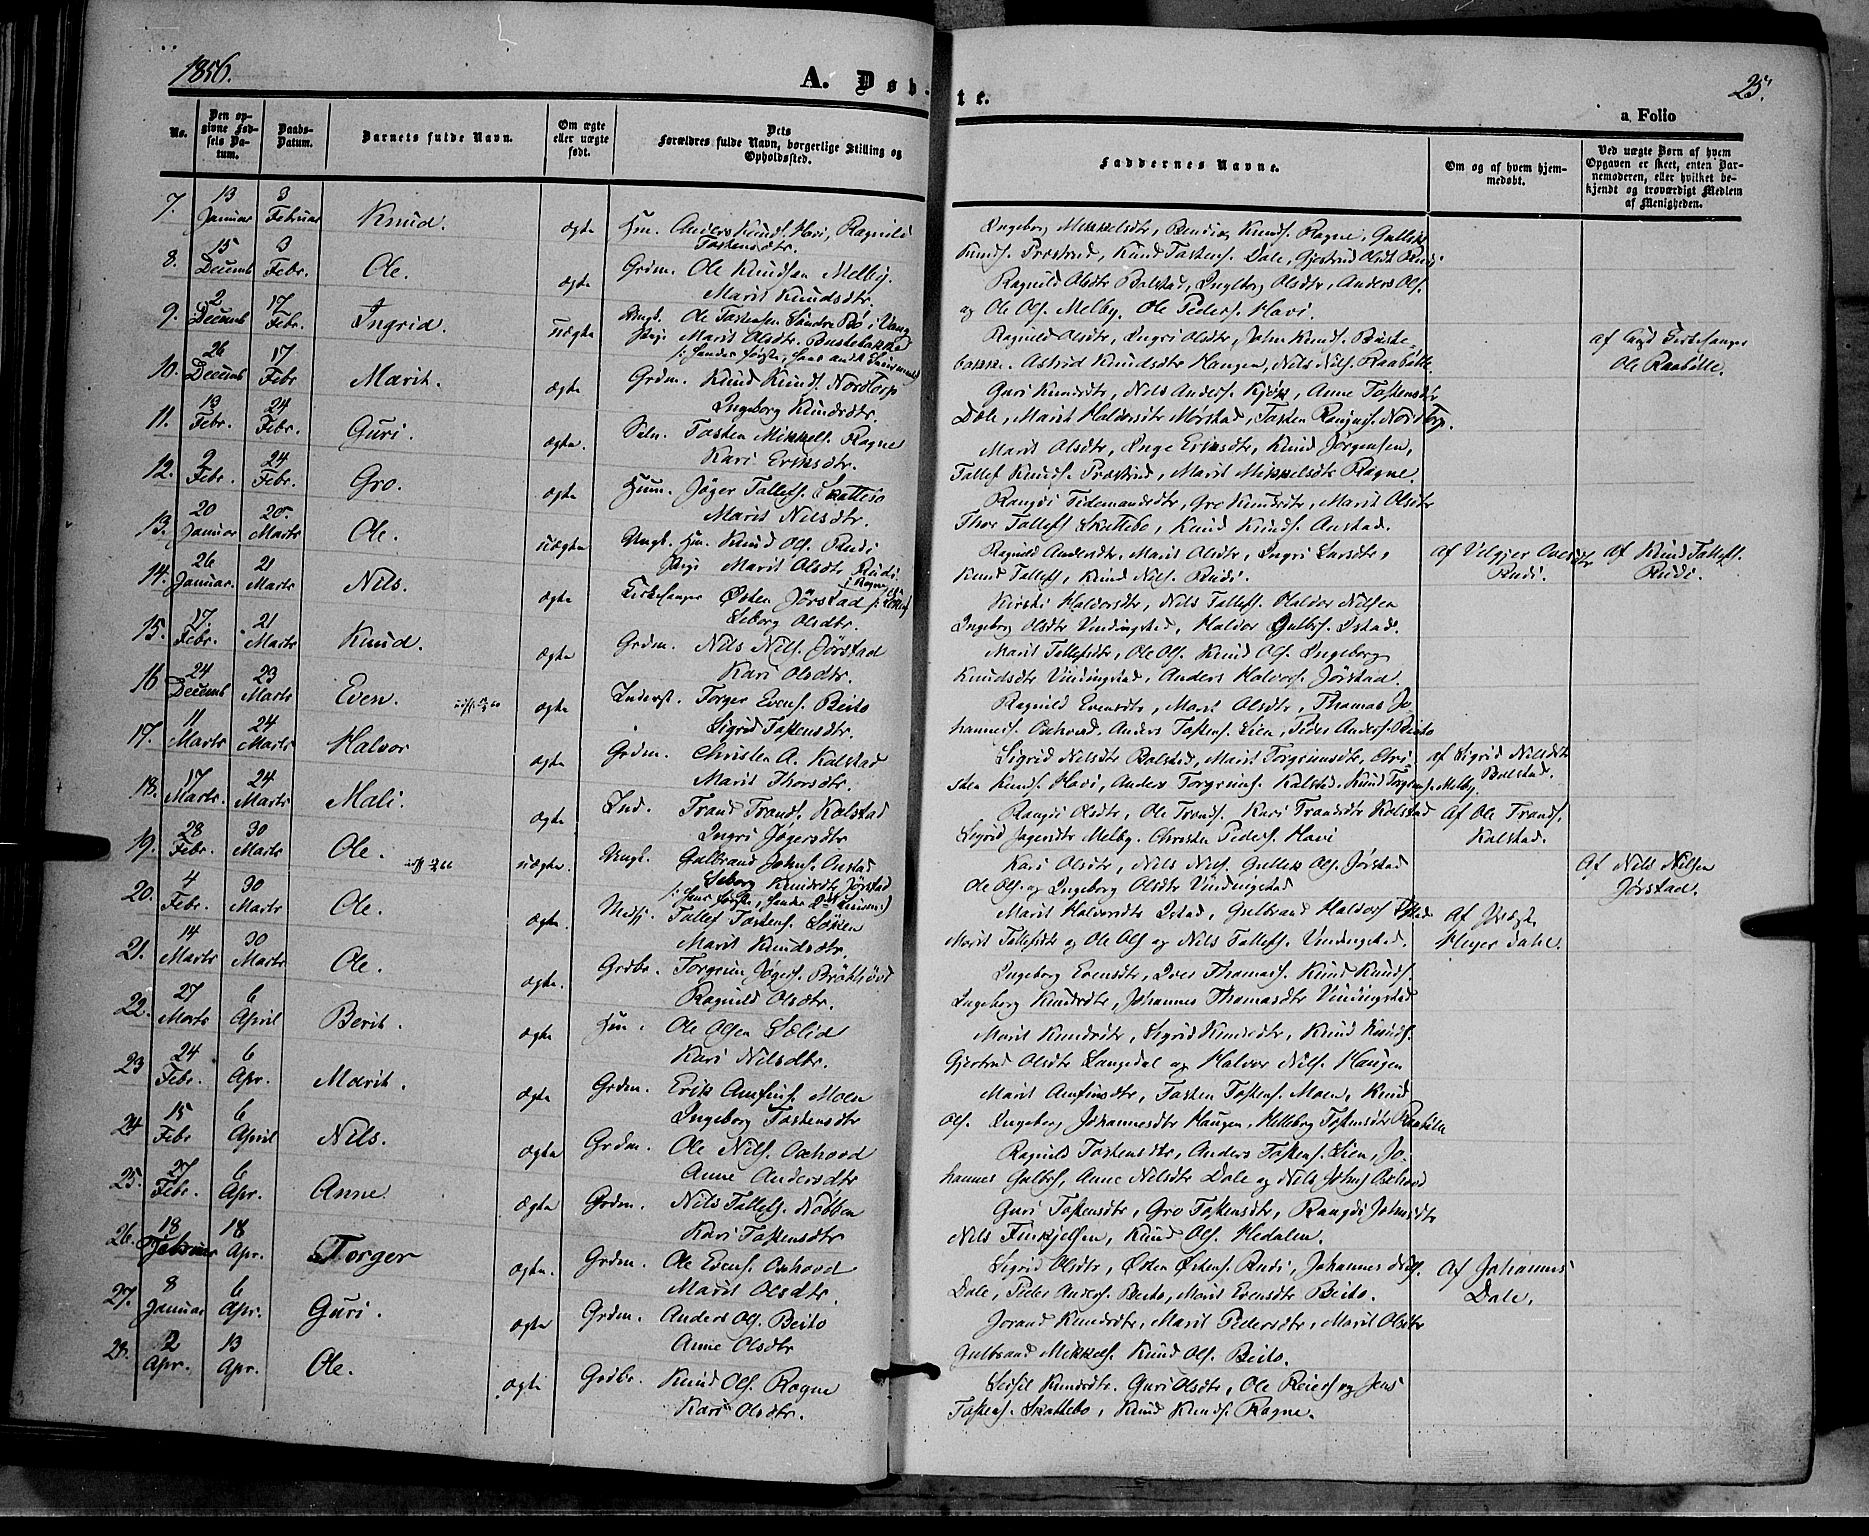 1856.
A. Døb-
te.
25.
a Folio
No.
Den op-
givne Fød-
sels Da-
tum.
Daabs-
Datum.
Barnets fulde Navn.
Om ægte
eller uægte
født.
Dets
Forældres fulde Navn, borgerlige Stilling og
Opholdssted.
Faddernes Navne.
Om og af hvem hjem-
medøbt.
Ved uægte Børn af hvem
Opgaven er skeet, enten Bar-
nemoderen, eller hvilket be-
kjendt og troværdigt Medlem
af Menigheden.
7. 13 Januar 3 Februar Knud. ægte Hm. Anders Knuds. Havi, Ragnild
Tostensdtr.
Ingeborg Mikkelsdtr, Bendix Knuds. Rogne, Gullik
Knuds. Prostrud, Knud Tostens. Dale, Gjertrud Olsdt Rudi
8. 15 Decemb 3 Febr. Ole. ægte Grdm. Ole Knudsen Melby.
Marit Knudsdtr.
Ragnild Olsdtr Bolstad, Ingeborg Olsdtr, Anders Ols.
og Ole Ols. Melby. Ole Peders. Havi.
9. 2 Decemb 17 Febr. Ingrid. uægte Ungk. Ole Tostensen Søndre Bø i Vang
Pige Marit Olsdtr. Bustebakke
Ragnild Olsdtr, Ingri Olsdtr, John Knuds. Buste-
bakke. Astrid Knudsdtr Haugen, Nils Nils. Raabølle.
Ole Raabølle.
10. 26 Decemb 17 Febr Marit. ægte Grdm. Knud Knuds. Nordtorp
Ingeborg Knudsdtr.
Guri Knudsdtr, Nils Anders. Kjøk, Anne Tostensdtr
Dale, Marit Halvorsdtr Morstad, Tosten Rangns. Nordtorp.
11. 13 Febr. 24 Febr. Guri. ægte. Tosten Mikkels. Rogne
Kari Eriksdtr.
Marit Olsdtr, Inge Eriksdtr, Knud Jørgensen,
Tollef Knuds. Prostrud, Marit Mikkelsdtr Rogne.
12. 2 Febr. 24 Febr. Gro. ægte Huusm. Jøger Tollefs. Skattebo
Marit Nilsdtr.
Rangdi Tidemandsdtr, Gro Knudsdtr, Marit Olsdtr
Thor Tollefs Skattebo, Knud Knuds. Onstad.
13. 20 Januar 20. Marts Ole. uægte Ungk. Hm. Knud Ols. Rudi
Pige Marit Olsdtr Rudi.
Ragnild Andersdtr, Marit Olsdtr, Ingri Larsdtr,
Knud Tollefs, Knud Nils. Rudi.
Rudi.
af Knud Tollefs.
Rudi.
14. 26 Januar. 21 Marts Nils. ægte Kirkesanger Østen Jørstad
Seborg Olsdtr.
Kirsti Halvorsdtr, Nils Tollefs. Halvor Nilsen
Ingeborg Olsdtr Vindingstad, Halvor Gulbs. Ystad.
15. 17. Febr. 21 Marts Knud. ægte Grdm. Nils Nils. Jørstad
Kari Olsdtr.
Marit Tollefsdtr, Ole Ols. Knud Ols. Ingeborg
Knudsdtr Vindingstad, Anders Halvors. Jørstad.
16 24 Decemb 23 Marts Even. ægte Inderst. Torger Evens. Beito
Sigrid Tostensdtr.
Ragnild Evensdtr, Marit Olsdtr, Thomas Jo-
hannes. Oxhovd. Anders Tostens. Lien, Peder Anders. Beito
17. 11 Marts 24 Marts Halvor ægte Grdm. Christen A. Kolstad
Marit Thorsdtr.
Sigrid Nilsdtr Bolstad, Marit Torgrimsdtr, Chri-
sten Knuds. Havi, Anders Torgrims. Kolstad. Knud Torgrims. Melby.
af Sigrid Nilsdtr
Bolstad.
18. 17 Marts. 24 Marts. Mali. ægte Ind. Trond Tronds. Kolstad
Ingri Jøgersdtr
Rangdi Olsdtr, Ole Tronds. Kari Trondsdtr Kolstad
Sigrid Jøgersdtr Melby. Christen Peders. Havi
Af Ole Tronds.
Kolstad.
19. 28 Febr. 30 Marts Ole. uægte. Ungk. Gulbrand Johns. Onstad
Seborg Knudsdtr Jørstad
Kari Olsdtr, Nils Nils. Gullik Ols. Jørstad
Ole Ols. og Ingeborg Olsdtr Vindingstad
Af Nils Nilsen
Jørstad.
20. 4 Febr. 30 Marts Ole. ægte. Tollef Tostens. Løken
Marit Knudsdtr.
Marit Halvorsdtr Ystad, Gulbrand Halvors Ystad
Marit Tollefsdtr og Ole Ols og Nils Tollefs. Vindingstad.
Meyer Dahl.
21. 14 Marts 30 Marts. Ole. ægte. Grdbr. Torgrim Jøgers.
Ragnild Olsdtr.
Ingeborg Evensdtr, Iver Thomas. Knud Knuds.
Ingeborg Knudsdtr, Johannes Thomasdtr Vindingstad
22. 27 Marts 6 April Berit. ægte Hm. Ole Olsen Sælid
Kari Nilsdtr.
Marit Knudsdtr, Sigrid Knudsdtr, Knud Knuds.
Gjertrud Olsdtr Langedal og Halvor Nils. Haugen
23 24 Febr. 6 Apr. Marit. ægte Grdm. Erik Amfins. Moen
Ingeborg Tostensdtr
Marit Amfinsdtr, Tosten Tostens. Moen, Knud
Ols. Ingeborg Johannesdtr Haugen, Helleborg Tostensdtr Raabølle
24 15 Febr 6 April Nils. ægte Grdm. Ole Nils. Oxhovd
Anne Andersdtr
Ragnild Tostensdtr, Anders Tostens. Lien, Jo-
hannes Gulbs, Anne Nilsdtr Dale og Nils Johns Oxhovd
25. 27 Febr. 6 Apr. Anne. ægte Grdm. Nils Tollefs. Nøbben
Kari Tostensdtr
Guri Tostensdtr, Gro Tostensdtr, Rangdi Johnsdtr
Nils Finkjelsen, Knud Ols. Hedalen.
26. 18 Februar 18 Apr. Torger ægte. Grdm. Ole Evens. Oxhovd
Marit Olsdtr.
Sigrid Olsdtr, Østen Østens. Rudi, Johannes Nils.
Dale, Peder Anders. Beito, Marit Evensdtr Beito.
Af Johannes
Dale.
27. 8 Januar 6 Apr. Guri. ægte Grdm. Anders Ols. Beito
Anne Olsdtr
Jorand Knudsdtr, Marit Pedersdtr, Marit Olsdtr
Gulbrand Mikkels. Knud Ols. Beito.
28. 2 Apr. 13 Apr. Ole. ægte Grdbr. Knud Ols. Rogne
Kari Olsdtr.
Sissel Knudsdtr. Guri Olsdtr, Ole Reiers og Jens
Tostens. Skattebo, Knud Knuds. Rogne.